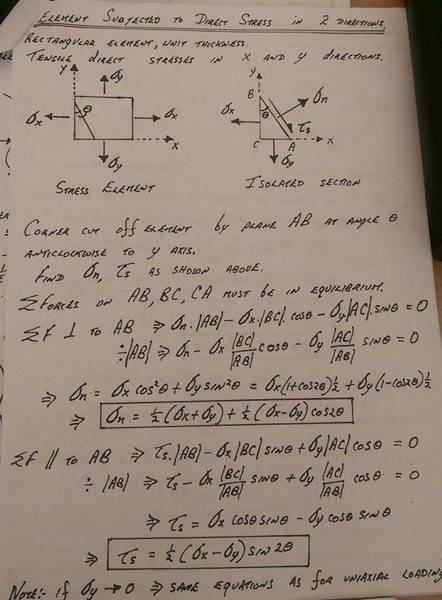 ELEMENT SUBJECTED TO DIRECT STRESS IN 2 DIRECTIONS.
RECTANGULAR ELEMENT, UNIT THICKNESS.
TENSILE DIRECT STRESSES IN X AND Y DIRECTIONS.
y σy
θ
σx σx
x
σy
STRESS ELEMENT
y
B σn
σx θ
τs
C A x
σy
ISOLATED SECTION
CORNER CUT OFF ELEMENT BY PLANE AB AT ANGLE θ
ANTICLOCKWISE TO Y AXIS.
FIND σn, τs AS SHOWN ABOVE.
ΣFORCES ON AB, BC, CA MUST BE IN EQUILIBRIUM.
ΣF ⊥ TO AB ⇒ σn.|AB| - σx.|BC|.cosθ - σy.|AC|.sinθ = 0
÷|AB| ⇒ σn - σx |BC|/|AB| cosθ - σy |AC|/|AB| sinθ = 0
⇒ σn = σx cos²θ + σy sin²θ = σx(1+cos2θ)½ + σy(1-cos2θ)½
⇒ σn = ½(σx+σy) + ½(σx-σy)cos2θ
ΣF ∥ TO AB ⇒ τs.|AB| - σx|BC|sinθ + σy|AC|cosθ = 0
÷ |AB| ⇒ τs - σx |BC|/|AB| sinθ + σy |AC|/|AB| cosθ = 0
⇒ τs = σx cosθ sinθ - σy cosθ sinθ
⇒ τs = ½(σx-σy)sin2θ
NOTE:- if σy → 0 ⇒ SAME EQUATIONS AS FOR UNIAXIAL LOADING